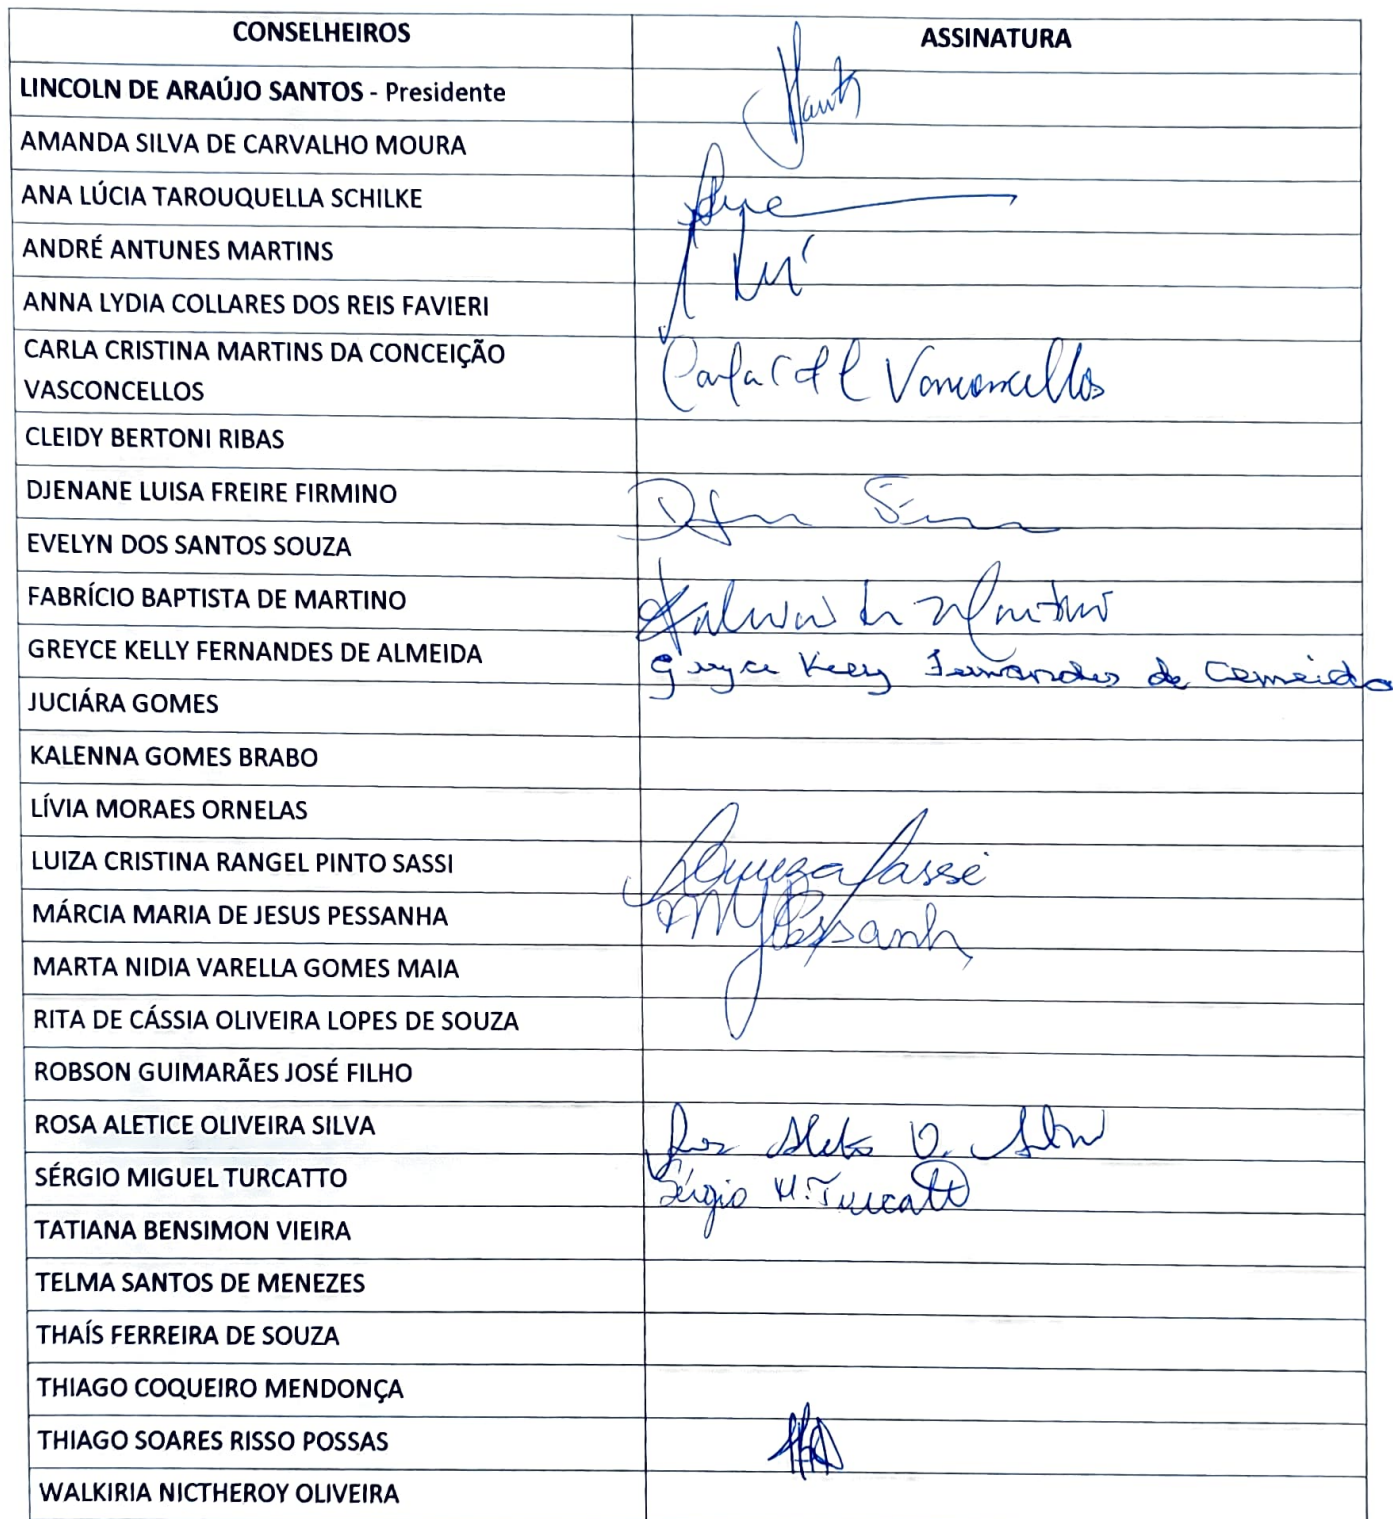 CONSELHEIROS ASSINATURA
LINCOLN DE ARAÚJO SANTOS - Presidente
AMANDA SILVA DE CARVALHO MOURA
ANA LÚCIA TAROUQUELLA SCHILKE
ANDRÉ ANTUNES MARTINS
ANNA LYDIA COLLARES DOS REIS FAVIERI
CARLA CRISTINA MARTINS DA CONCEIÇÃO
VASCONCELLOS
Carla Vasconcellos
CLEIDY BERTONI RIBAS
DJENANE LUISA FREIRE FIRMINO
EVELYN DOS SANTOS SOUZA
FABRÍCIO BAPTISTA DE MARTINO
GREYCE KELLY FERNANDES DE ALMEIDA Greyce Kelly Fernandes de Almeida
JUCIÁRA GOMES
KALENNA GOMES BRABO
LÍVIA MORAES ORNELAS
LUIZA CRISTINA RANGEL PINTO SASSI Luiza Sassi
MÁRCIA MARIA DE JESUS PESSANHA MMJPessanha
MARTA NIDIA VARELLA GOMES MAIA
RITA DE CÁSSIA OLIVEIRA LOPES DE SOUZA
ROBSON GUIMARÃES JOSÉ FILHO
ROSA ALETICE OLIVEIRA SILVA
SÉRGIO MIGUEL TURCATTO Sérgio M. Turcatto
TATIANA BENSIMON VIEIRA
TELMA SANTOS DE MENEZES
THAÍS FERREIRA DE SOUZA
THIAGO COQUEIRO MENDONÇA
THIAGO SOARES RISSO POSSAS
WALKIRIA NICTHEROY OLIVEIRA